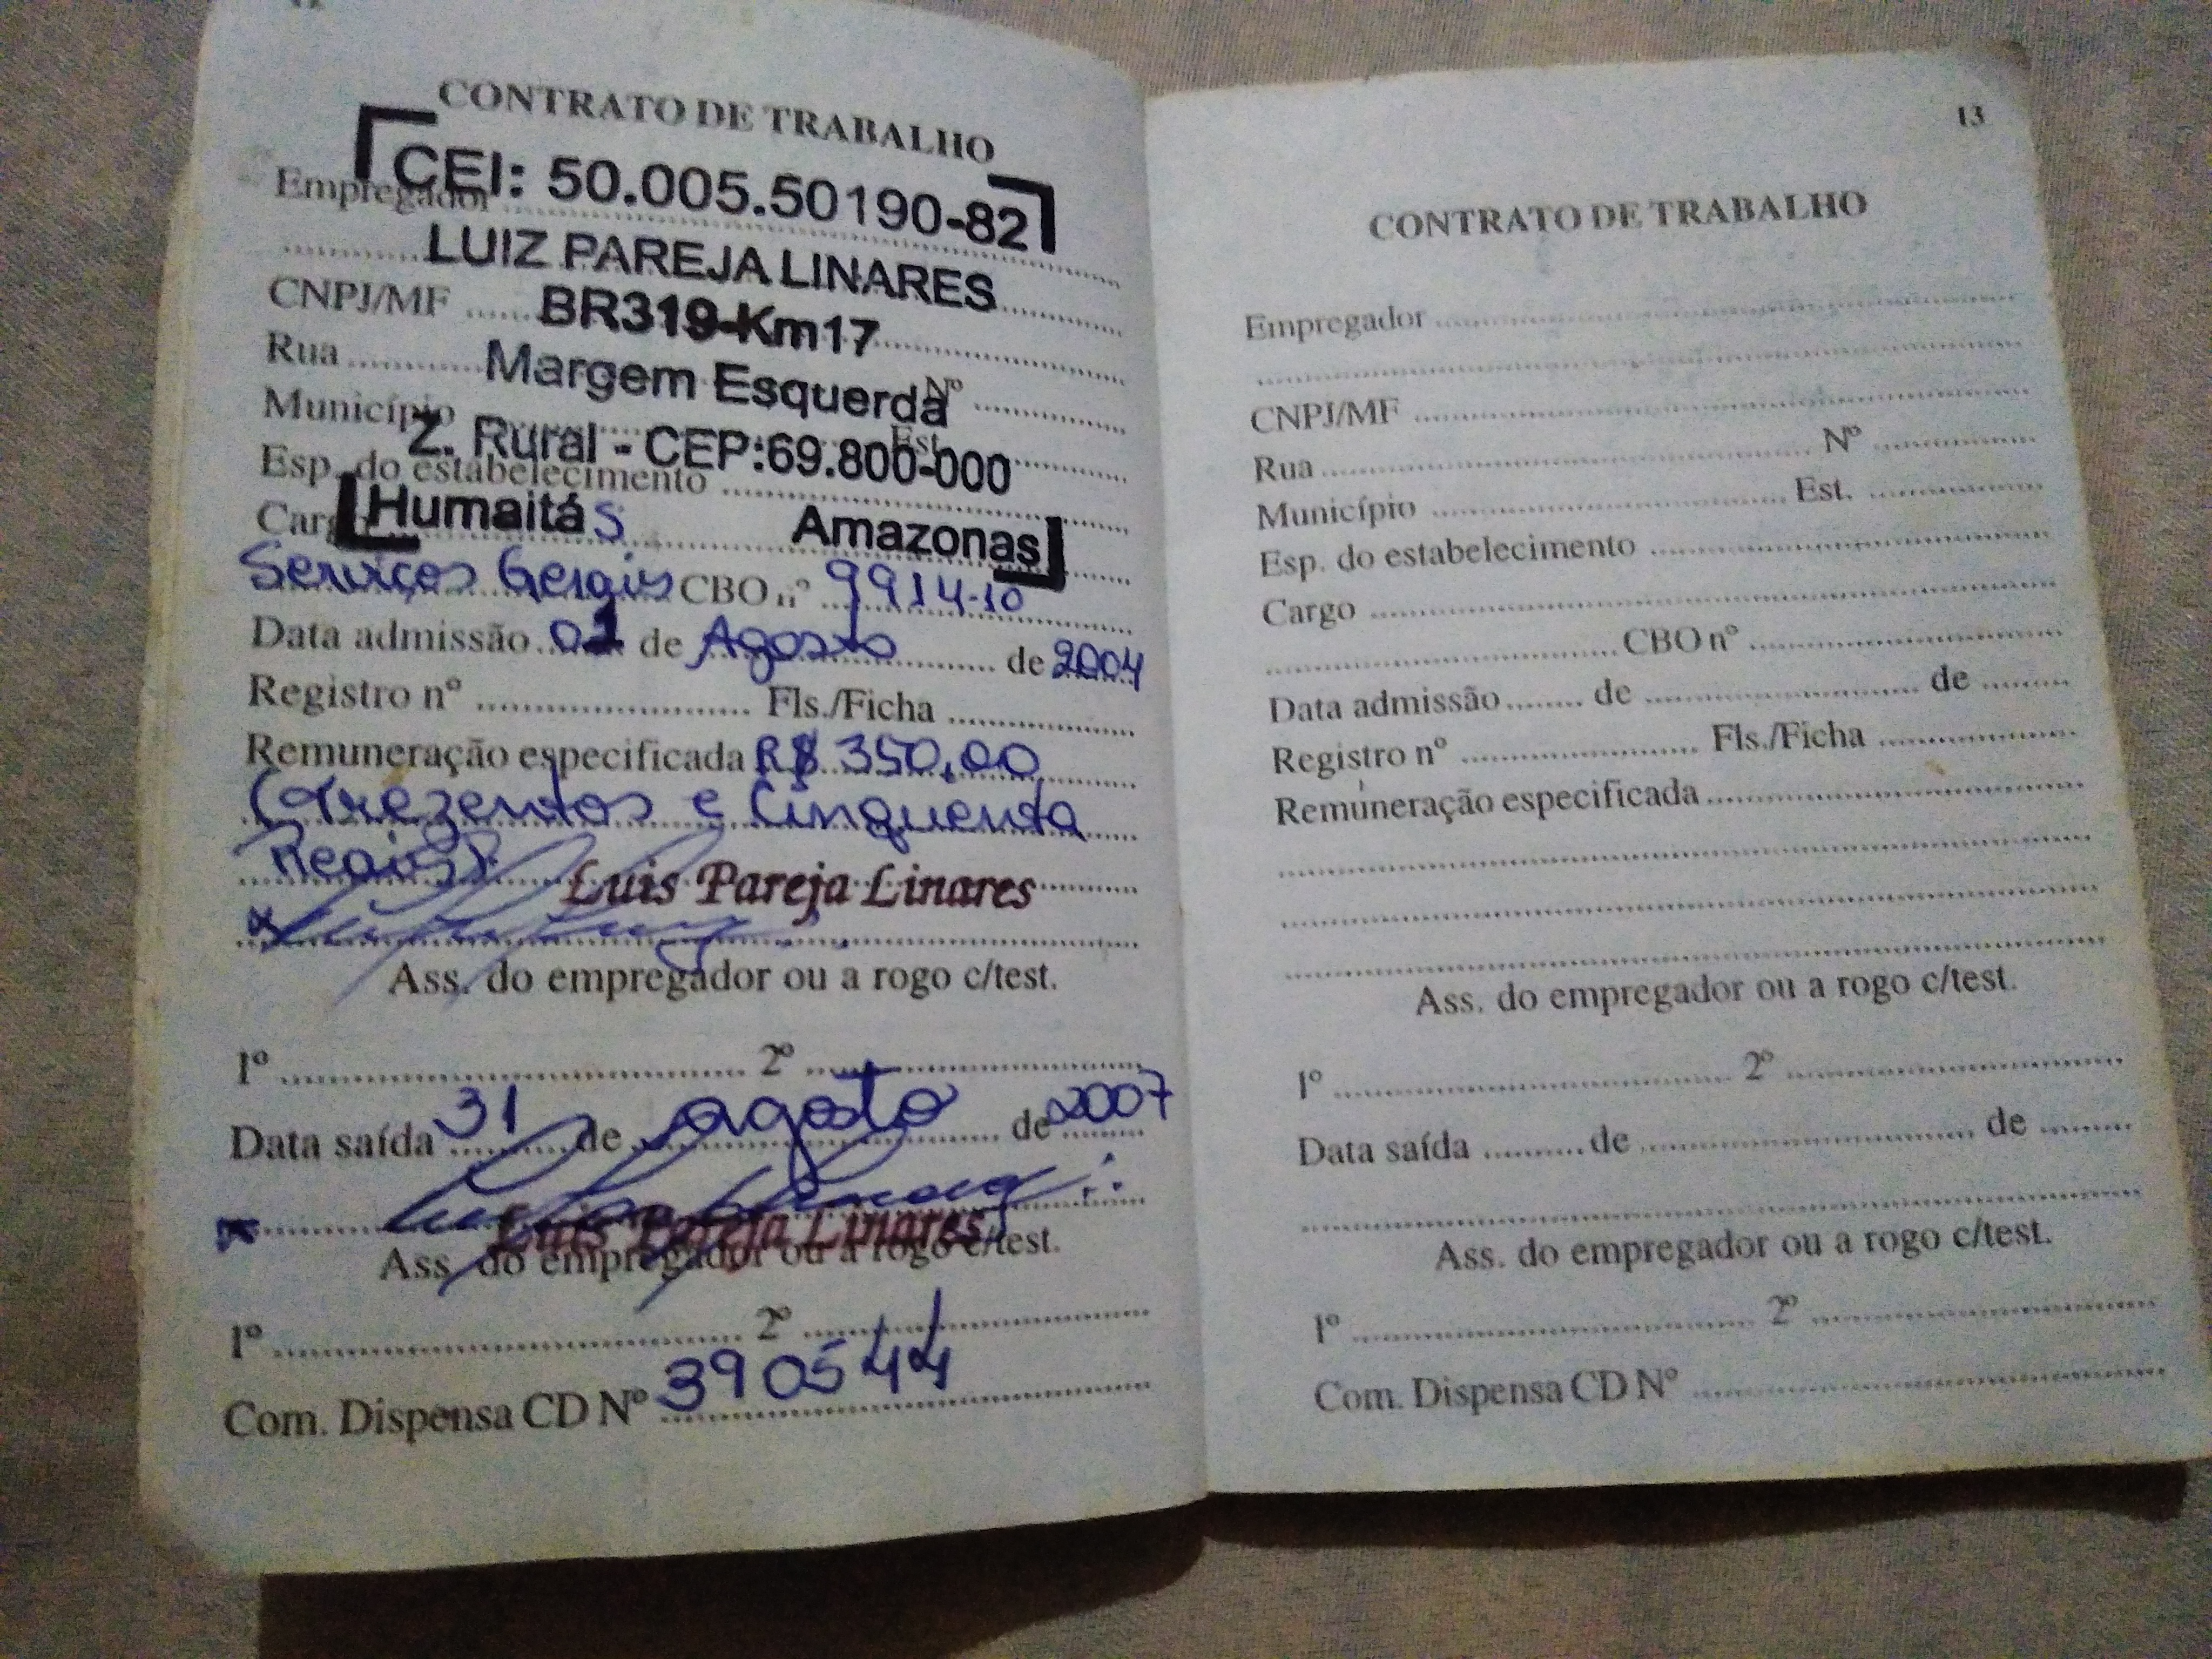 CONTRATO DE TRABALHO
CEI: 50.005.50190-82
Empregador
LUIZ PAREJA LINARES
CNPJ/MF BR319-Km17
Rua Margem Esquerda Nº
Município Est.
Z. Rural - CEP:69.800-000
Esp. do estabelecimento
Cargo Humaitá S Amazonas
Serviços Gerais CBO nº 9914-10
Data admissão 01 de Agosto de 2004
Registro nº Fls./Ficha
Remuneração especificada R$ 350,00
(Trezentos e Cinquenta
Reais)
Luis Pareja Linares
Ass. do empregador ou a rogo c/test.
1º 2º
Data saída 31 de agosto de 2007
Luis Pareja Linares
Ass. do empregador ou a rogo c/test.
1º 2º
Com. Dispensa CD Nº 390544
13
CONTRATO DE TRABALHO
Empregador
CNPJ/MF
Rua Nº
Município Est.
Esp. do estabelecimento
Cargo
CBO nº
Data admissão de de
Registro nº Fls./Ficha
Remuneração especificada
Ass. do empregador ou a rogo c/test.
1º 2º
Data saída de de
Ass. do empregador ou a rogo c/test.
1º 2º
Com. Dispensa CD Nº